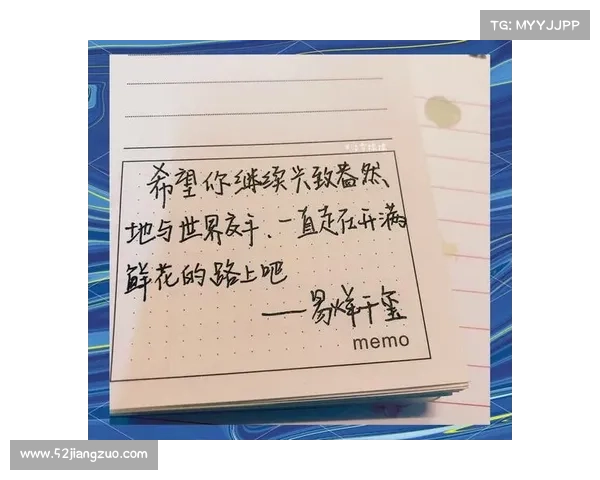 TG: MYYJJPP
希望你继续兴致盎然、
地与世界交手、一直走在开满
鲜花的路上吧
——易烊千玺
memo
www.52jiangzuo.com